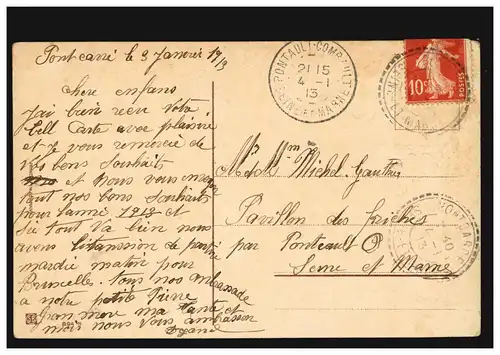 Pontcarré le 3 Janvier 1913
chere enfans
J'ai bien recu Votre
bell Carte avec plaisire
et je vous remercie de
Vos bons Souhaits
et nous vous
tout nos bons Souhaits
pour l'anné 1913 et
sie tout Va bien nous
avons l'intansion de partir
mardie matin pour
Bruxcelles. tous nos
a notre petit Pierre
Jean mere ma tante et
moi nous vous
PONTAULT-COMBAULT
21 15
4 -1
13
SEINE-ET-MARNE
10
POSTES
Mr & Mme Michel Gauthier
Pavillon des friches
par Ponteault C
Seine et Marne
PONTCARRÉ